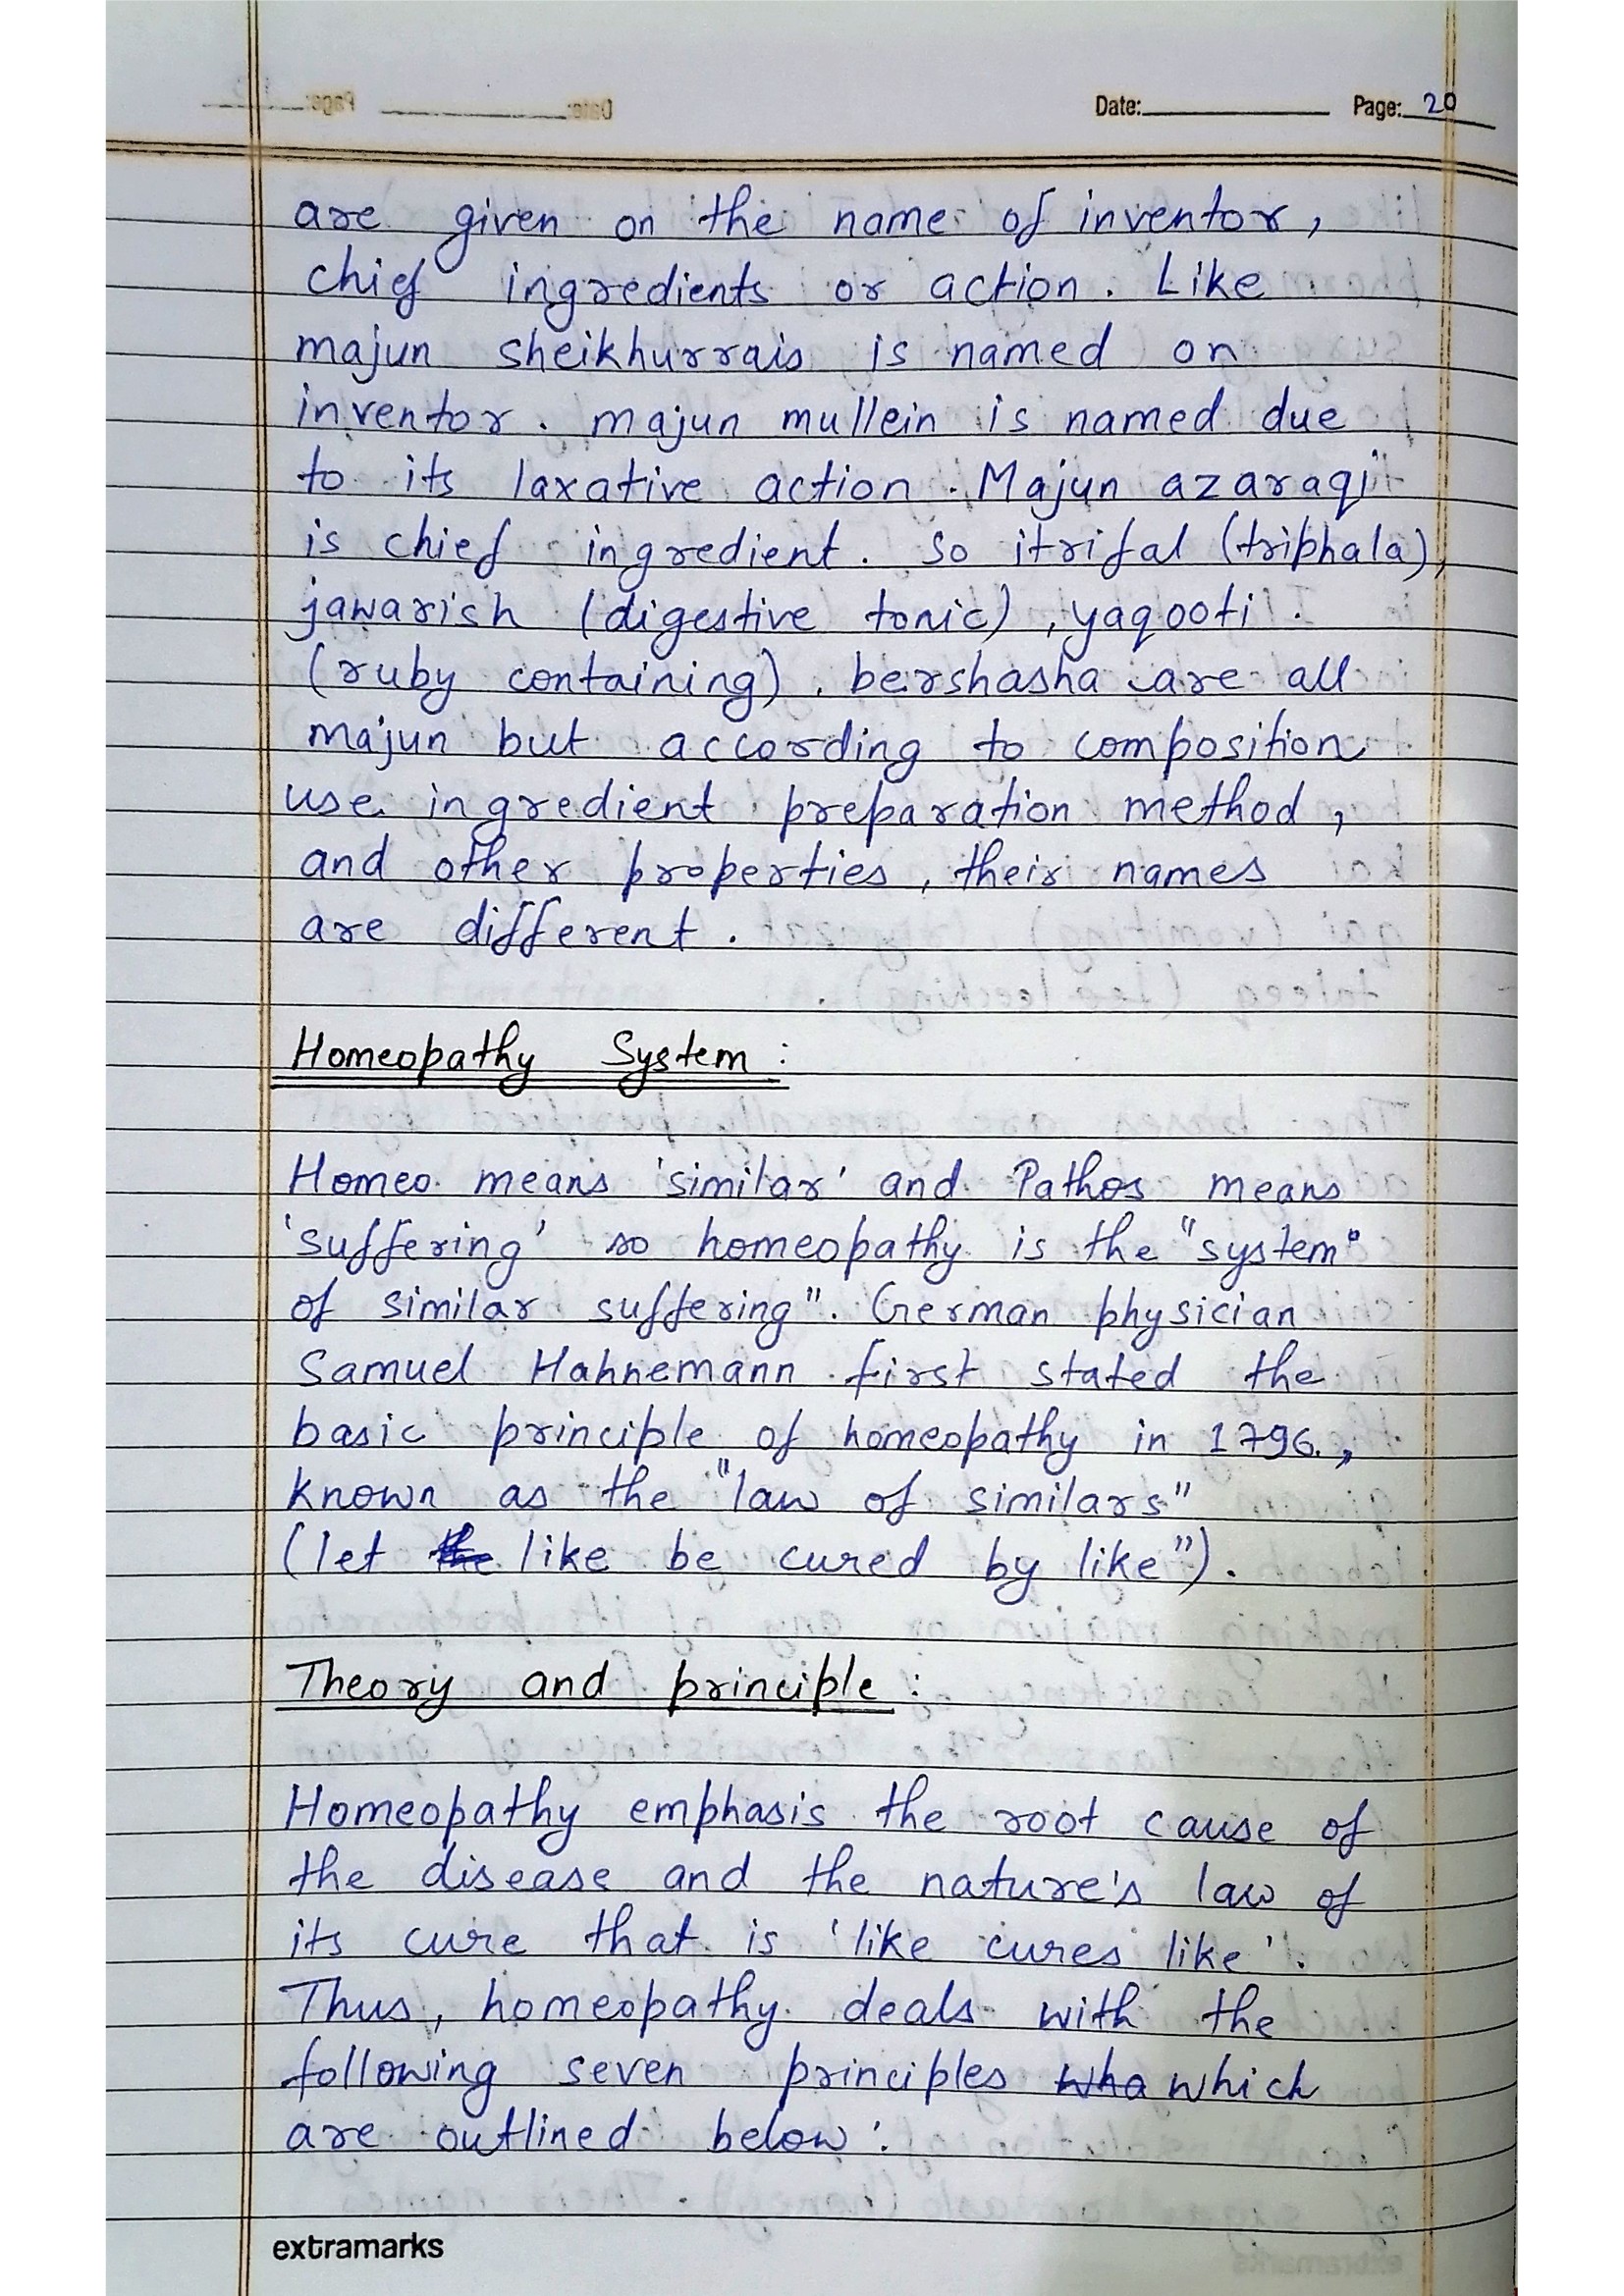 Date: Page: 20
are given on the name of inventor,
chief ingredients or action. Like
majun sheikhurrais is named on
inventor. majun mullein is named due
to its laxative action. Majun azaraqi
is chief ingredient. So itrifal (triphala),
jawarish (digestive tonic), yaqooti.
(ruby containing), bershasha are all
majun but according to composition
use ingredient preparation method,
and other properties, their names
are different.
Homeopathy System :
Homeo means 'similar' and Pathos means
'suffering' so homeopathy is the "system"
of similar suffering". German physician
Samuel Hahnemann first stated the
basic principle of homeopathy in 1796,
known as the "law of similars"
(let the like be cured by like").
Theory and principle :
Homeopathy emphasis the root cause of
the disease and the nature's law of
its cure that is 'like cures like'.
Thus, homeopathy deals with the
following seven principles wha which
are outlined below:
extramarks